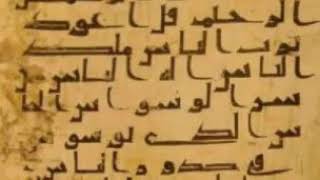 الرحيم قل اعوذ
برب الناس ملك
الناس اله الناس من
شر الوسواس الخنا
س الذي يوسوس
في صدور الناس